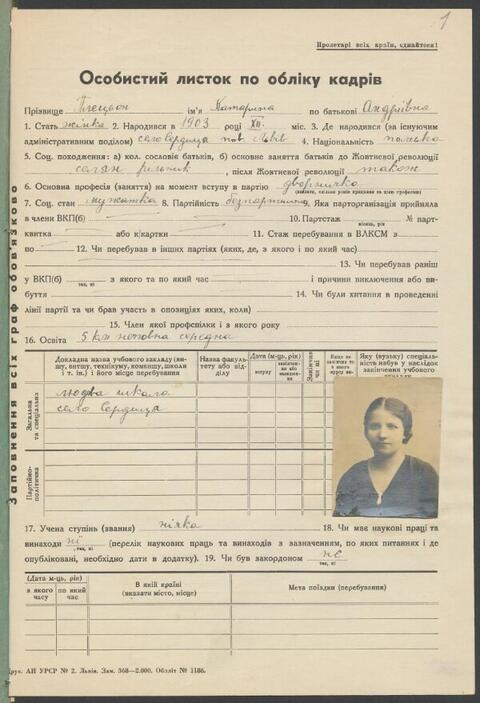 1
Пролетарі всіх країн, єднайтеся!
Особистий листок по обліку кадрів
Прізвище ім'я Катарина по батькові Андріївна
1. Стать жінка 2. Народився в 1903 році XII. міс. 3. Де народився (за існуючим
адміністративним поділом) село Сердиця пов. Львів 4. Національність полька
5. Соц. походження: а) кол. сословіє батьків, б) основне заняття батьків до Жовтневої революції
селян рільник, після Жовтневої революції також
6. Основна професія (заняття) на момент вступу в партію дворничка
7. Соц. стан 8. Партійність безпартійна Яка парторганізація прийняла
в члени ВКП(б) 10. Партстаж місяць, рік № парт-
квитка або к/картки 11. Стаж перебування в ВЛКСМ з
по 12. Чи перебував в інших партіях (яких, де, з якого і по який час)
13. Чи перебував раніш
у ВКП(б) так, ні з якого та по який час і причини виключення або ви-
буття 14. Чи були хитання в проведенні
лінії партії та чи брав участь в опозиціях яких, коли)
15. Член якої профспілки і з якого року
16. Освіта 5 кл неповна середна
Заповнення всіх граф обов'язково
Докладна назва учбового закладу (ви-
шу, втишу, технікуму, комвишу, школи
і т. ін.) і його місце перебування
Назва факуль-
тету або від-
ділу
Дата (м-ць, рік)
вступу
Закінчив чи ні
Яку (вузьку) спеціаль-
ність набув у наслідок
закінчення учбового
Загальна та спеціальна
людва школа
село Сердиця
Партійно-політична
17. Учена ступінь (звання) ніяка 18. Чи має наукові праці та
винаходи ні так, ні (перелік наукових праць та винаходів з зазначенням, по яких питаннях і де
опубліковані, необхідно дати в додатку). 19. Чи був закордоном не так, ні
(Дата м-ць, рік)
з якого часу
по який час
В якій країні
(вказати місто, місце)
Мета поїздки (перебування)
Друк. АН УРСР № 2. Львів. Зам. 368—2.000. Обліт № 1186.